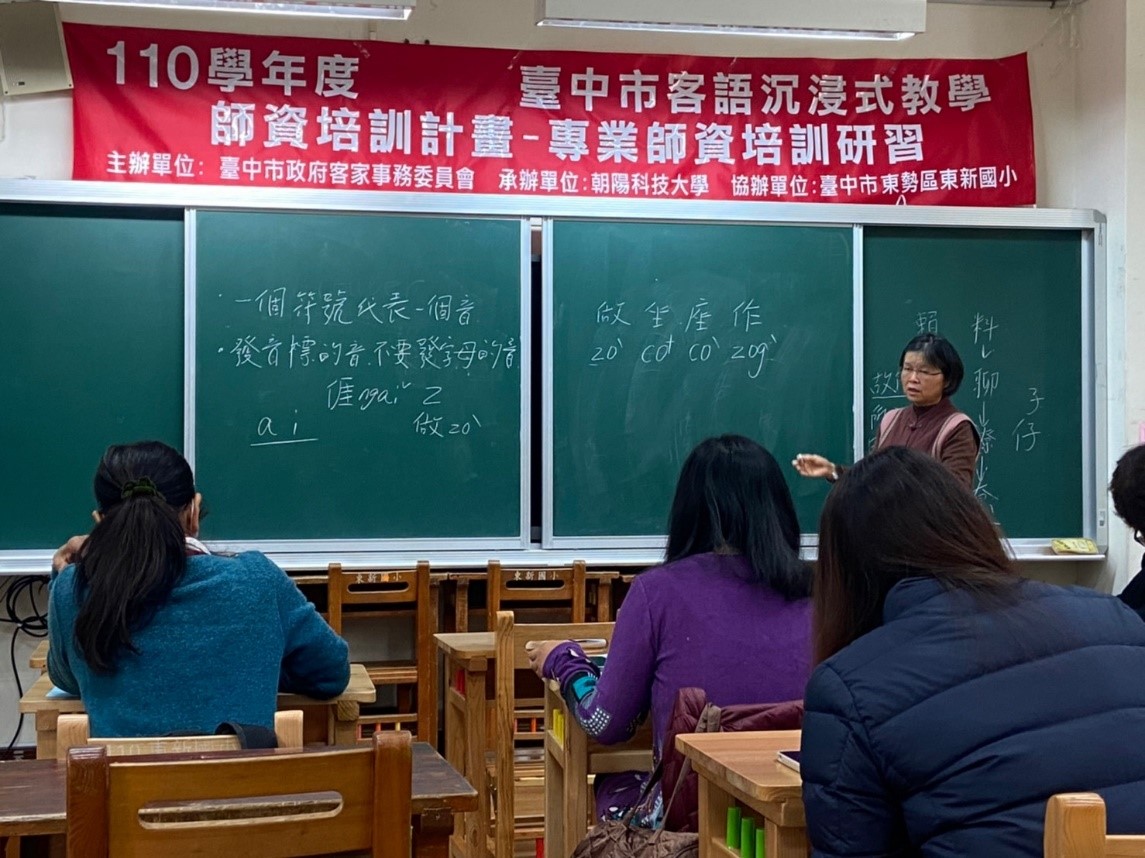 110學年度 臺中市客語沉浸式教學
師資培訓計畫-專業師資培訓研習
主辦單位：臺中市政府客家事務委員會 承辦單位：朝陽科技大學 協辦單位：臺中市東勢區東新國小
·一個符號代表一個音
·發音標的音不要發字母的音
𠊎ngaiˇ z
a i 做zoˋ
做 坐 座 作
zoˋ co⁺ coˋ zogˋ
賴
料
聊
子
仔
東新國小
東新國小